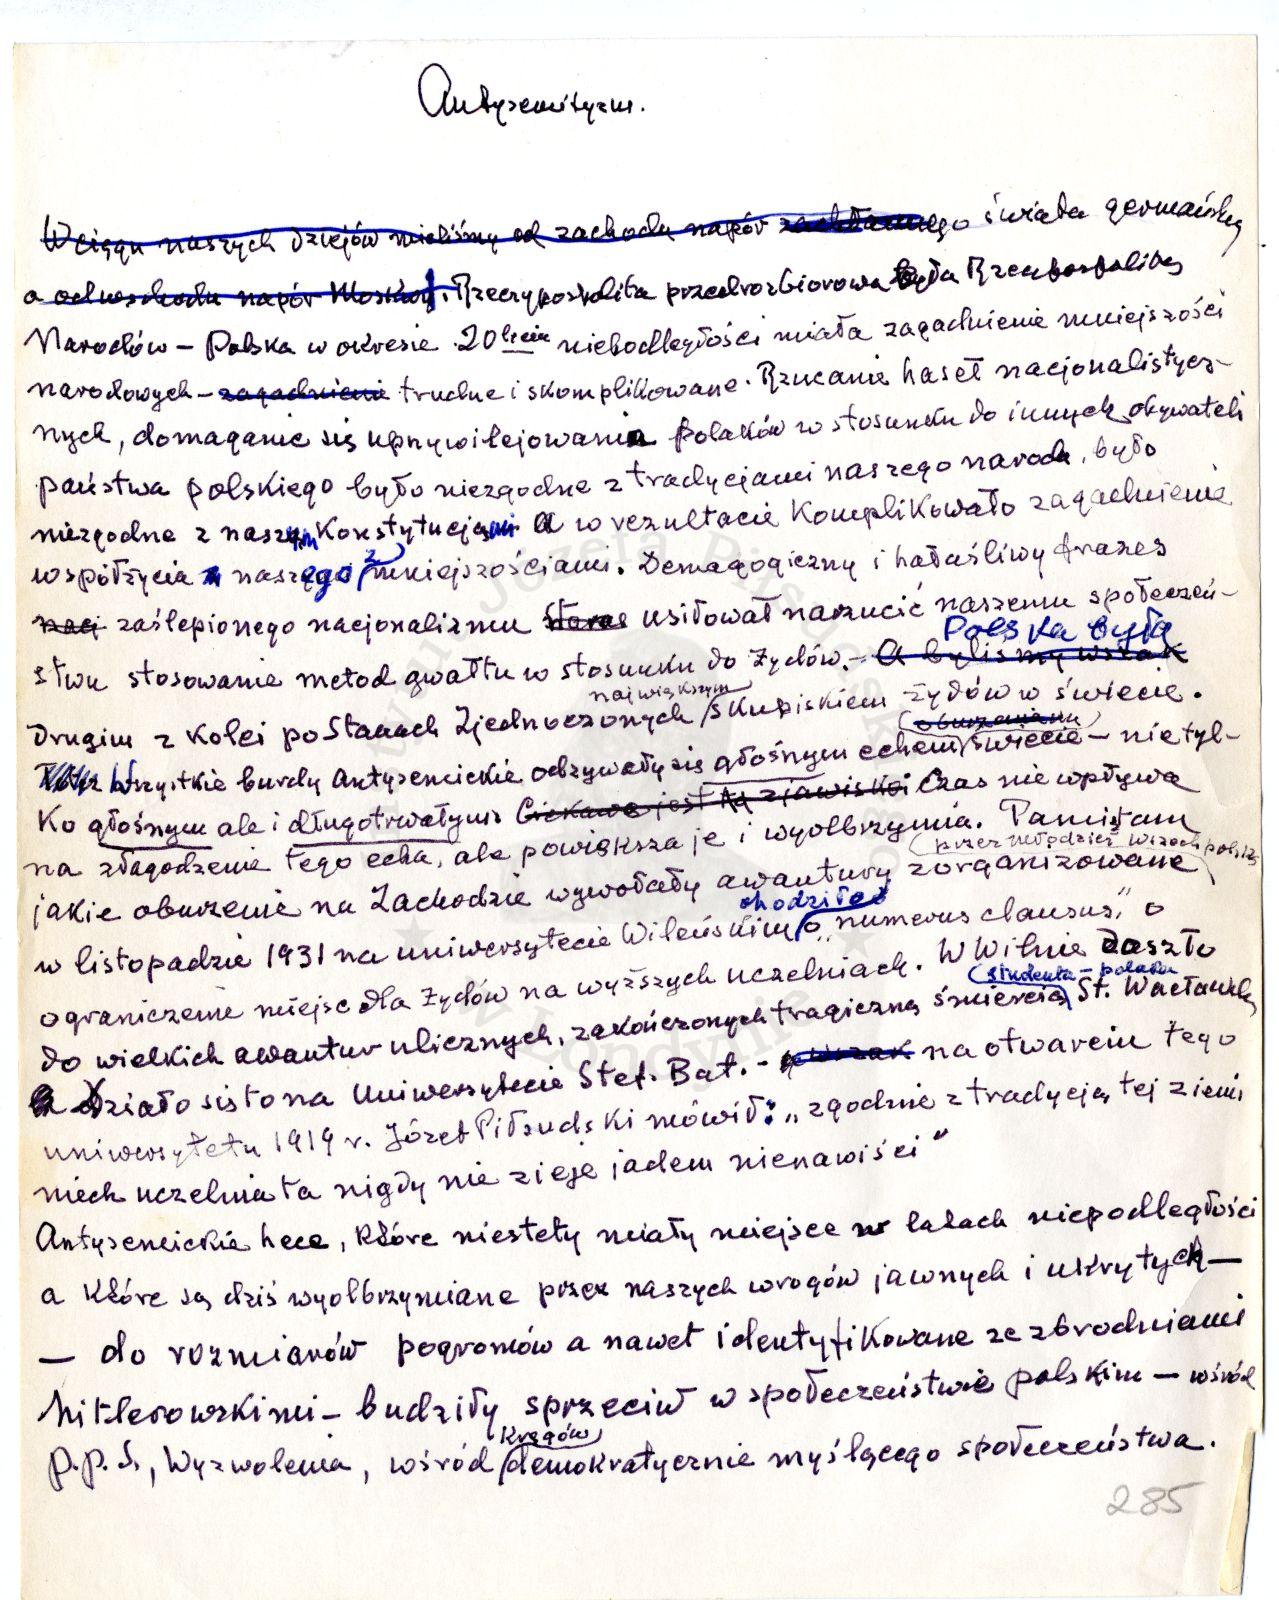 Antysemityzm.
W ciągu naszych dziejów mieliśmy od zachodu napór zachłannego świata germańskiego
a od wschodu napór Moskwy. Rzeczypospolita przedrozbiorowa była Rzeczpospolitą
Narodów – Polska w okresie 20 lecia niepodległości miała zagadnienie mniejszości
narodowych – zagadnienie trudne i skomplikowane. Rzucanie haseł nacjonalistycz-
nych, domaganie się uprzywilejowania Polaków w stosunku do innych obywateli
państwa polskiego było niezgodne z tradycjami naszego narodu, było
niezgodne z naszymi Konstytucjami a w rezultacie Komplikowało zagadnienie
współżycia naszego z mniejszościami. Demagogiczny i hałaśliwy frazes
zaślepionego nacjonalizmu usiłował narzucić naszemu społeczeń-
Polska była
stwu stosowanie metod gwałtu w stosunku do żydów. – A byliśmy wszak
największym
Drugim z kolei po Stanach Zjednoczonych skupiskiem żydów w świecie.
oburzenia
Wszystkie burdy antysemickie odzywały się głośnym echem w świecie – nie tyl-
Ko głośnym ale i długotrwałym. Ciekawe jest to zjawisko: Czas nie wpływa
na złagodzenie tego echa, ale powiększa je i wyolbrzymia. Pamiętam
przez młodzież wszechpolską
jakie oburzenie na Zachodzie wywołały awantury zorganizowane
chodziło o
w listopadzie 1931 na uniwersytecie Wileńskim o „numerus clausus," o
ograniczenie miejsc dla żydów na wyższych uczelniach. W Wilnie doszło
studenta – polaka
do wielkich awantur ulicznych, zakończonych tragiczną śmiercią St. Wacławskiego
Działo się to na Uniwersytecie Stef. Bat. – a wszak na otwarciu tego
uniwersytetu 1919 r. Józef Piłsudski mówił: „zgodnie z tradycją tej ziemi
niech uczelnia ta nigdy nie zieje jadem nienawiści"
Antysemickie hece, które niestety miały miejsce w latach niepodległości
a które są dziś wyolbrzymiane przez naszych wrogów jawnych i ukrytych –
– do rozmiarów pogromów a nawet identyfikowane ze zbrodniami
hitlerowskimi – budziły sprzeciw w społeczeństwie polskim – wśród
kręgów
P.P.S., Wyzwolenia, wśród demokratycznie myślącego społeczeństwa.
285
Instytut Józefa Piłsudskiego
w Londynie